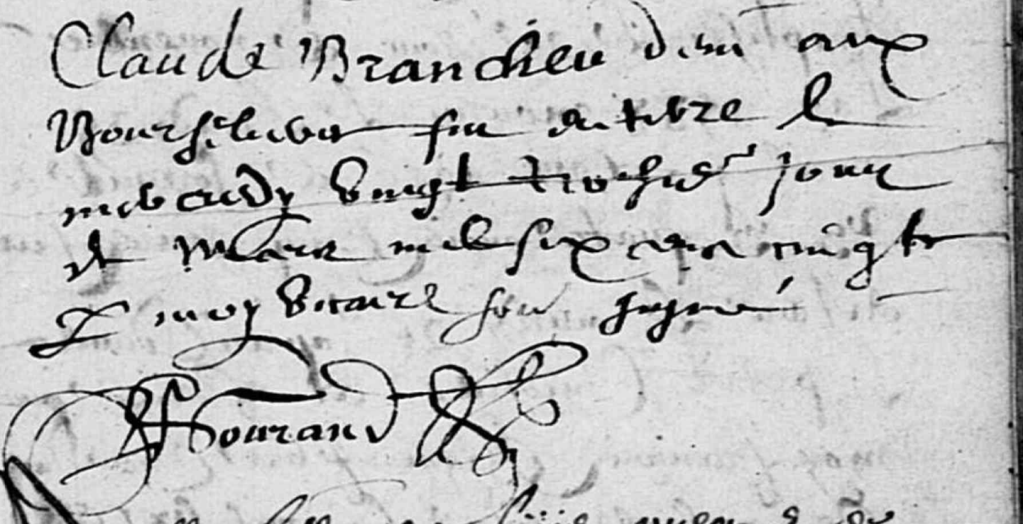 Claude Brancheu dem aux
fut enterre le
mercredy vingt troisiesme jour
de Mars mil six cens cinqte
P moy vicaire soub signé
Touraud